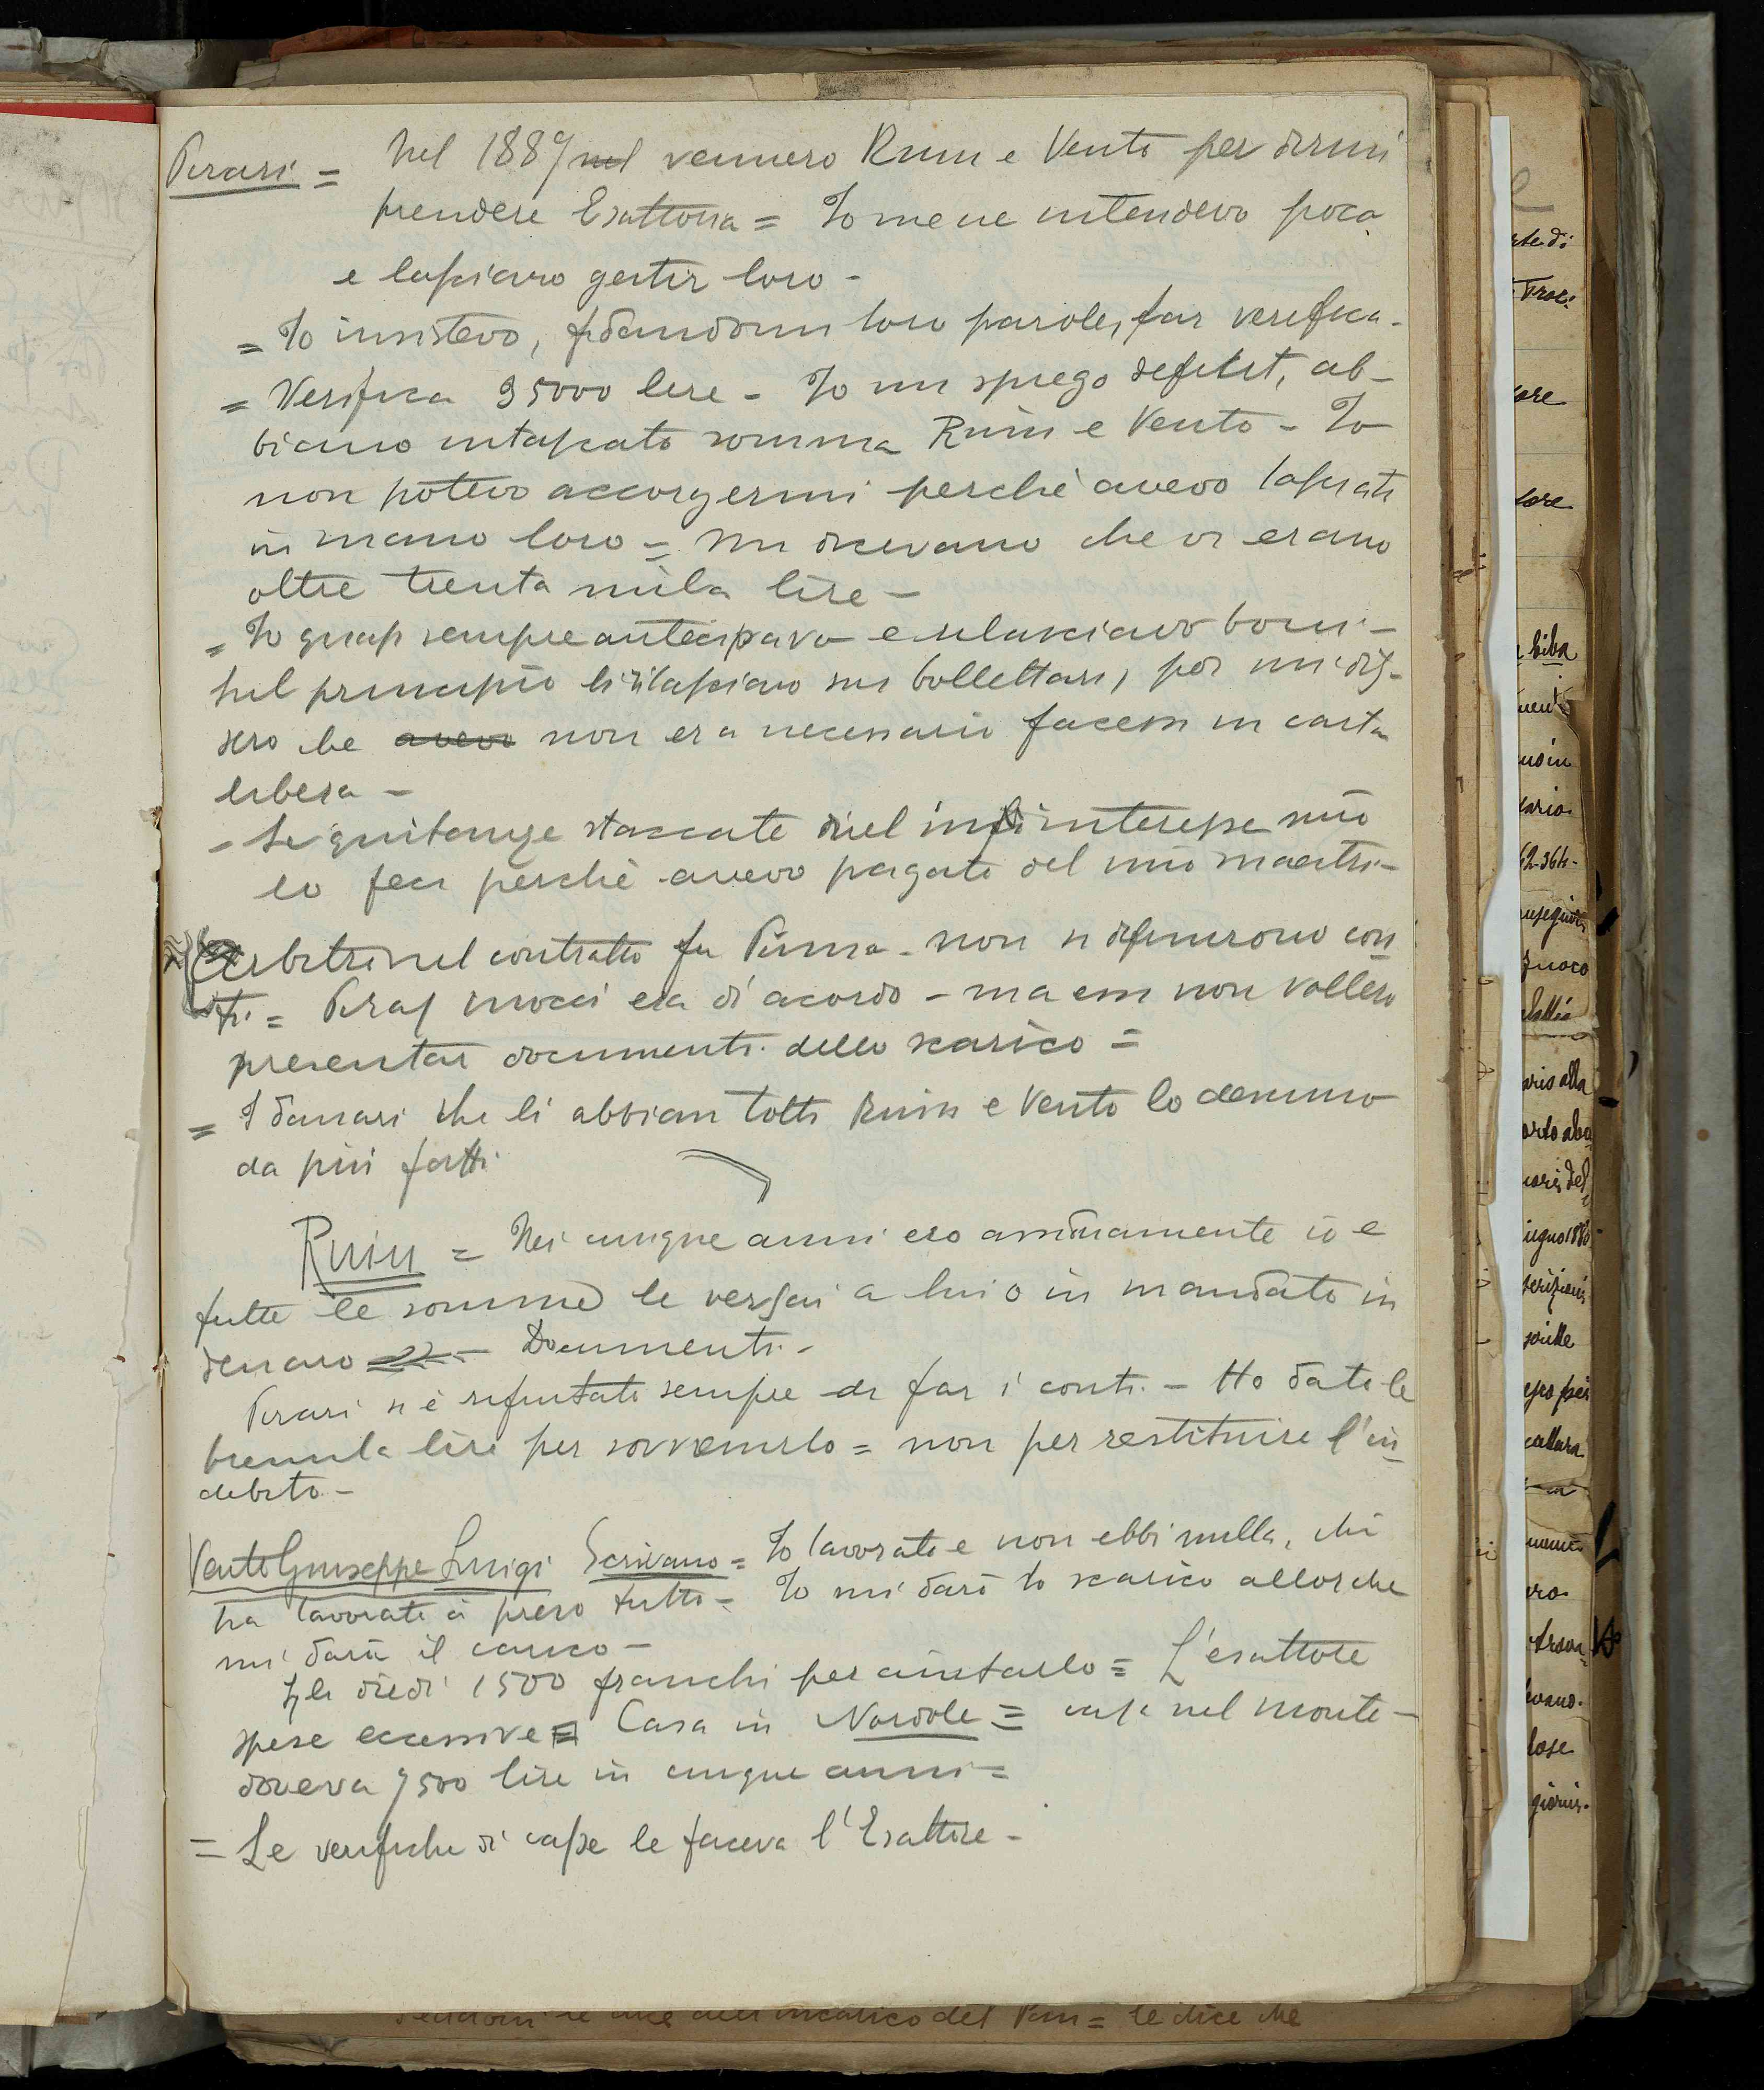 Pirari = Nel 1889 nel vennero Ruiu e Vento per dirmi
prendere Esattoria = Io me ne intendevo poco
e lasciavo gestir loro -
= Io insistevo, fidandomi loro parole, far verifica -
= Verifica 35000 lire - Io mi spiego deficit, ab-
biano intascato somma Ruiu e Vento - Io
non potevo accorgermi perchè avevo lasciato
in mano loro = Mi dicevano che vi erano
oltre trenta mila lire -
= Io quasi sempre anticipavo e rilasciavo boni -
Nel principio li rilasciavo sui bollettari, poi mi dis-
sero che avevo non era necessario facessi in carta
libera -
- Le quitanze staccate nel interesse mio
lo feci perchè avevo pagato del mio maestri -
Arbitri nel contratto fu Pinna - non si definirono con
ti = Piras mocci era di acordo - ma essi non vollero
presentar documenti dello scarico =
= I danari che li abbian tolti Ruiu e Vento lo desumo
da più fatti
Ruiu = Nei cinque anni ero assiduamente io e
tutte le somme le versai a lui o in mandato in
denaro - Documenti -
Pirari si è rifiutato sempre di far i conti - Ho dato le
tremila lire per sovvenirlo = non per restituire l'in
debito -
Vento Giuseppe Luigi Scrivano = Io lavorato e non ebbi nulla, chi
ha lavorato à preso tutto = Io mi darò lo scarico allorchè
mi darà il carico -
Gli diedi 1500 franchi per aiutarlo = L'esattore
spese eccessive = Casa in Nardole = casa nel monte -
doveva 7500 lire in cinque anni =
= Le verifiche di casse le faceva l'Esattore -